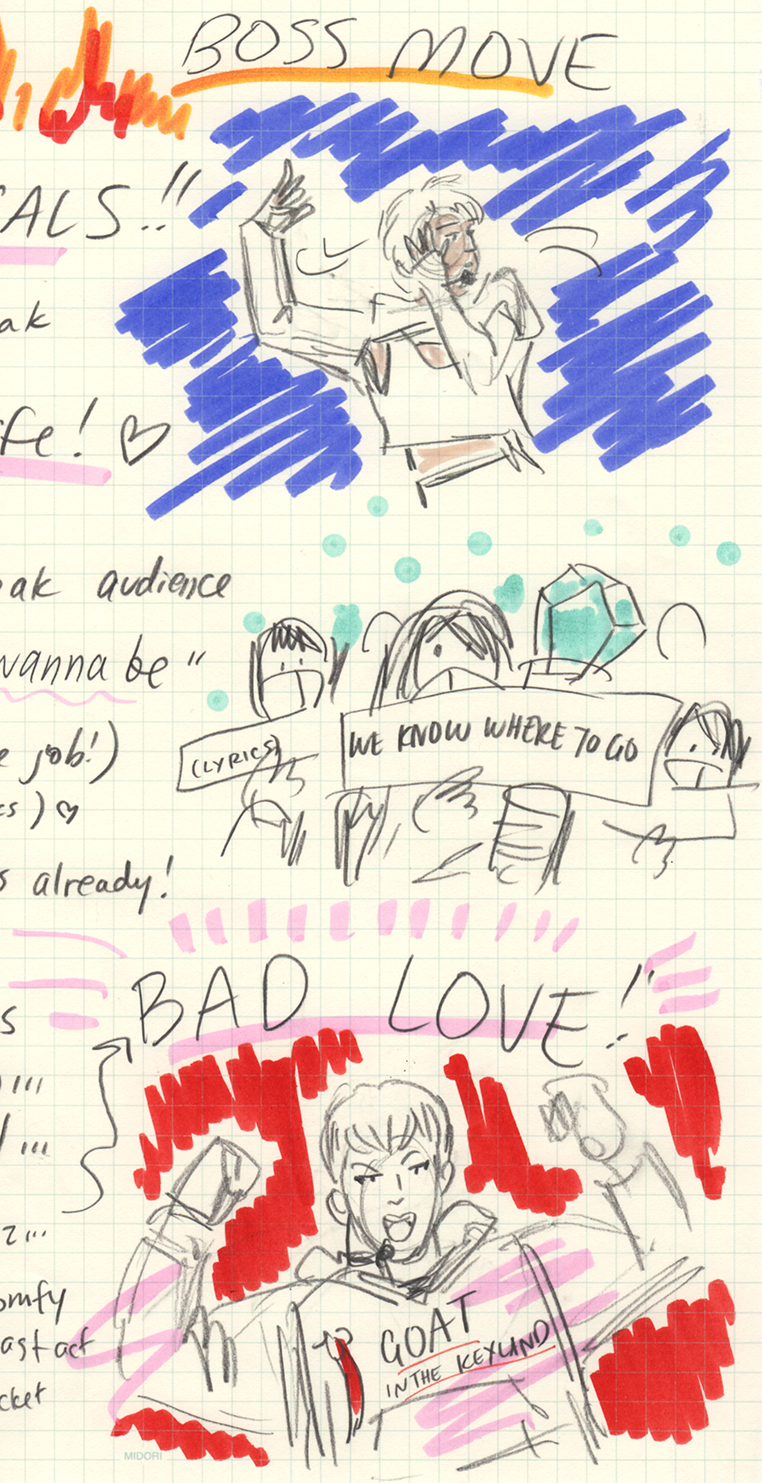 BOSS MOVE
ALS!!
ak
fe! ♡
ak audience
wanna be"
job!)
(LYRICS)
WE KNOW WHERE TO GO
) ♡
already!
BAD LOVE!!
GOAT
IN THE KEYLAND
omfy
ast act
cket
MIDORI